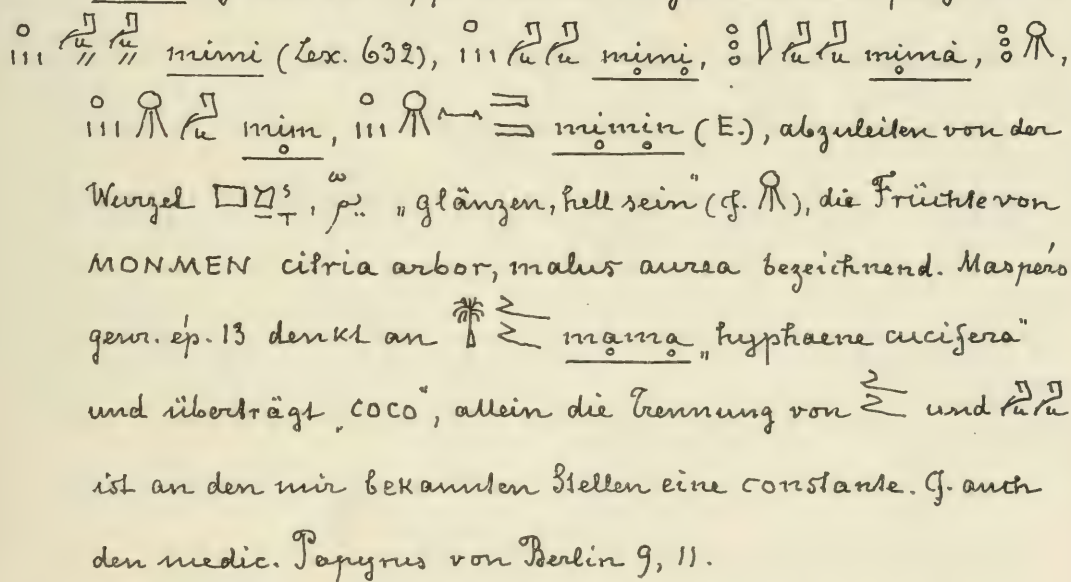 mimi (Lex. 632), mimi, mimȧ,
mim, mimin (E.), abzuleiten von der
Wurzel „glänzen, hell sein“ (cf. ), die Früchte von
MONMEN citria arbor, malus aurea bezeichnend. Maspéro
genr. ép. 13 denkt an mama „hyphaene cucifera“
und überträgt „coco“, allein die Trennung von und
ist an den mir bekannten Stellen eine constante. Cf. auch
den medic. Papyrus von Berlin 9, 11.